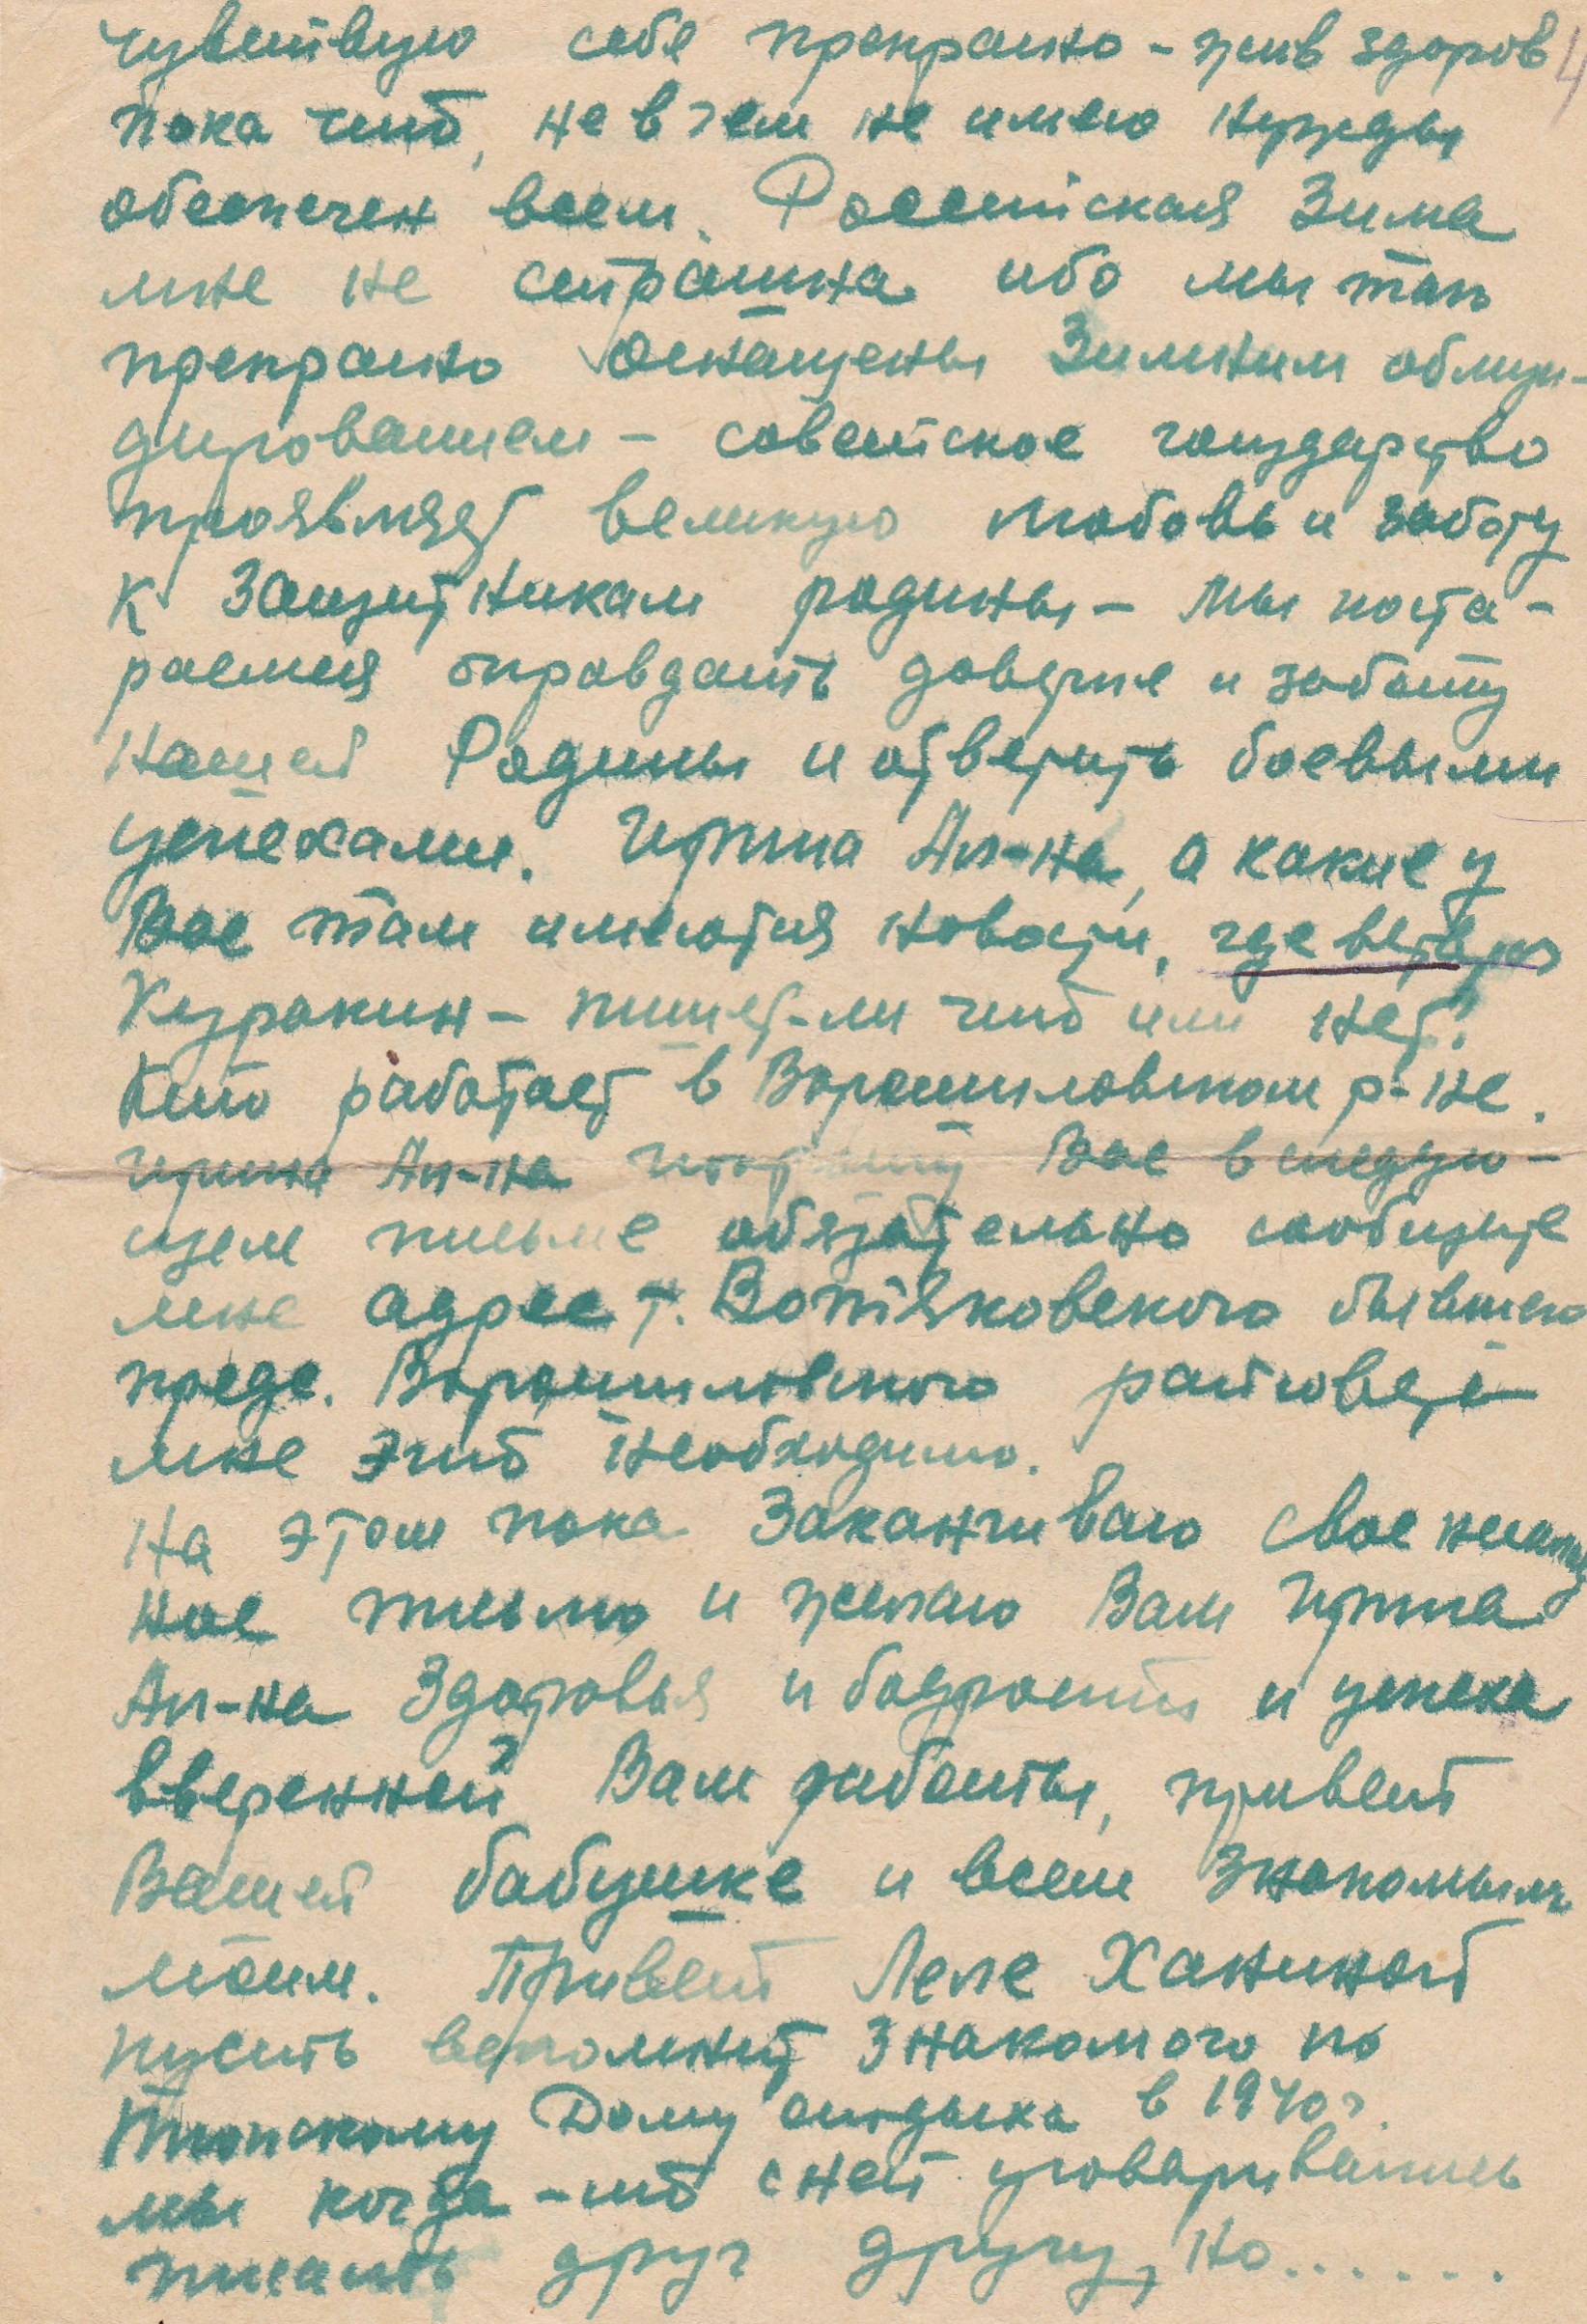 чувствую себя прекрасно - жив здоров 4
пока что, не в чем не имею нужды
обеспечен всем. Российская Зима
мне не страшна ибо мы так
прекрасно оснащены Зимним обмун-
дированием - советское государство
проявляет великую любовь и заботу
к Защитникам родины - Мы поста-
раемся оправдать доверие и заботу
Нашей Родины и ответить боевыми
успехами. Ирина Ал-на, а какие у
Вас там имеются новости, где ветврач
Куракин - пишет-ли что или нет?
Кто работает в Ворошиловском р-не.
Ирина Ал-на попрошу Вас в следую-
щем письме обязательно сообщите
мне адрес т. Вотяковского бывшего
предс. Ворошиловского райсовета
мне это необходимо.
На этом пока Заканчиваю свое
ное письмо и желаю Вам Ирина
Ал-на Здоровья и бодрости и успеха
вверенной Вам работы, привет
Вашей бабушке и всем Знакомым
моим. Привет Леле Ханиной
пусть вспомнит Знакомого по
Дому отдыха в 1940 г.
мы когда-то с ней уговаривались
писать друг другу, но......